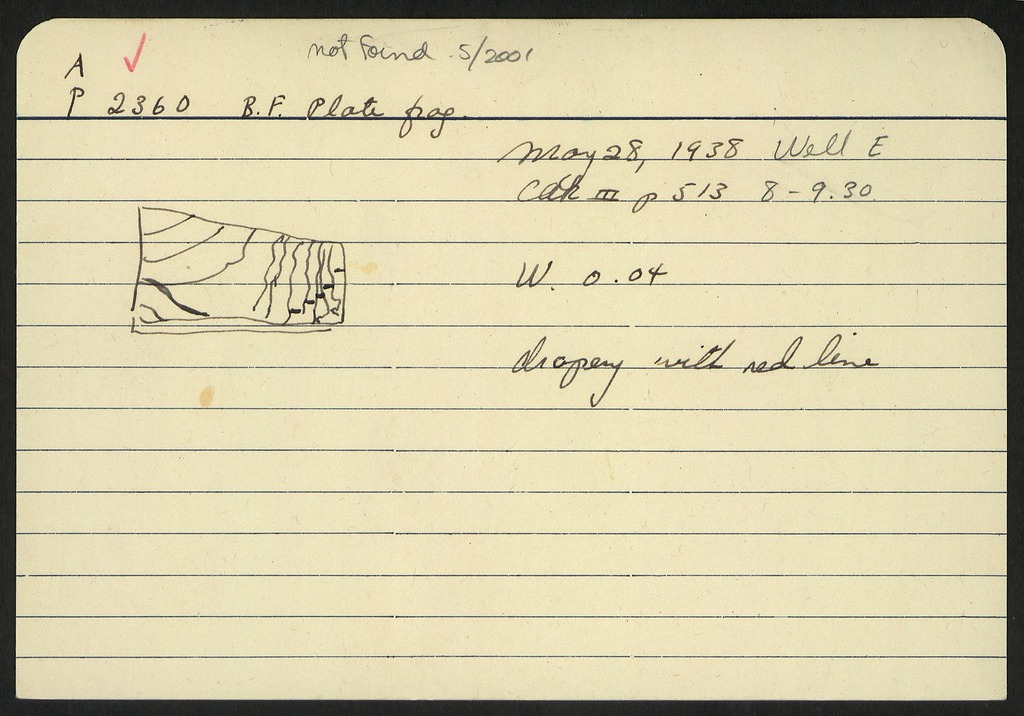 not found 5/2001
A ✓
P 2360 B.F. Plate frag.
May 28, 1938 Well E
III p 513 8-9.30
W. 0.04
drapery with red line